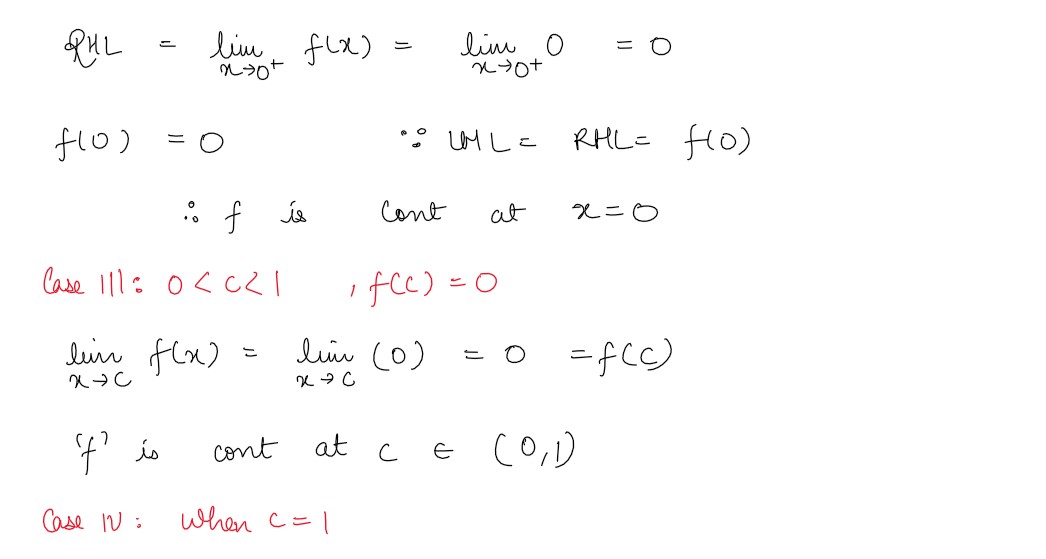 RHL = lim x→0⁺ f(x) = lim x→0⁺ 0 = 0
f(0) = 0 ∵ LHL = RHL = f(0)
∴ f is cont at x = 0
Case III: 0 < c < 1 , f(c) = 0
lim x→c f(x) = lim x→c (0) = 0 = f(c)
'f' is cont at c ∈ (0,1)
Case IV: when c = 1